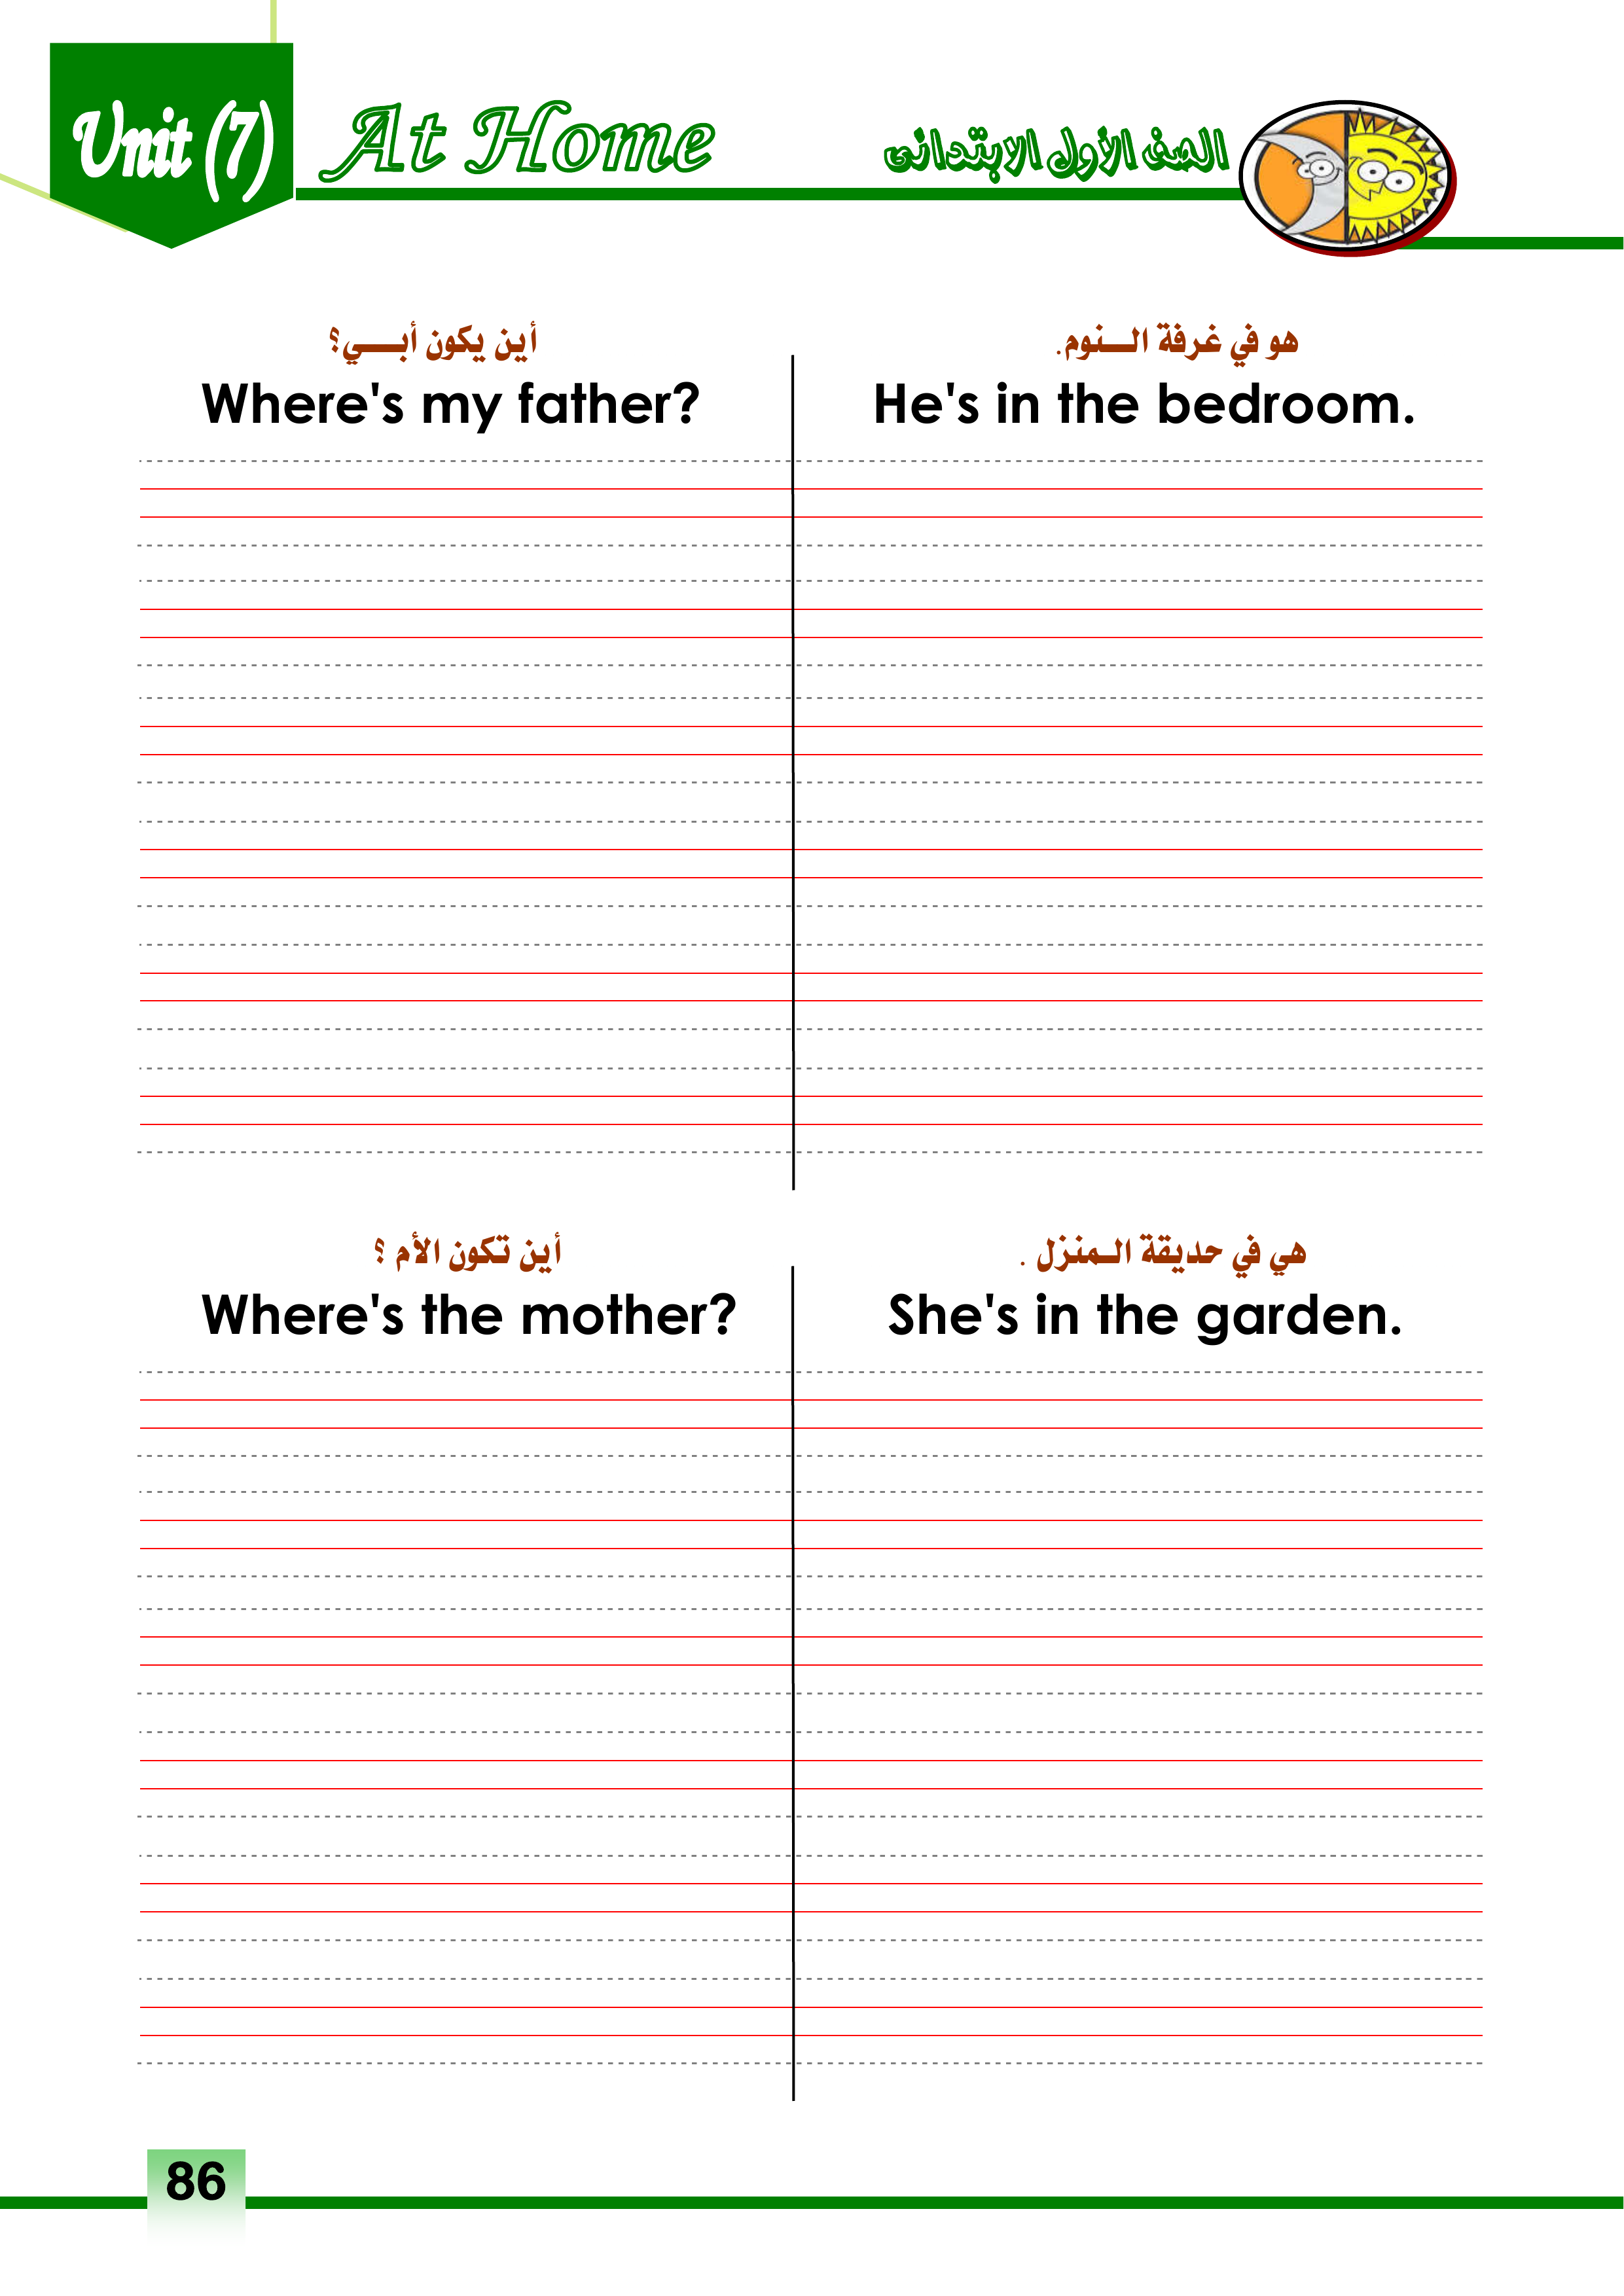 Unit (7)
At Home
الصف الأول الابتدائى
أين يكون أبـــي؟
Where's my father?
هو في غرفة الـــنوم.
He's in the bedroom.
أين تكون الأم ؟
Where's the mother?
هي في حديقة الـمنزل .
She's in the garden.
86